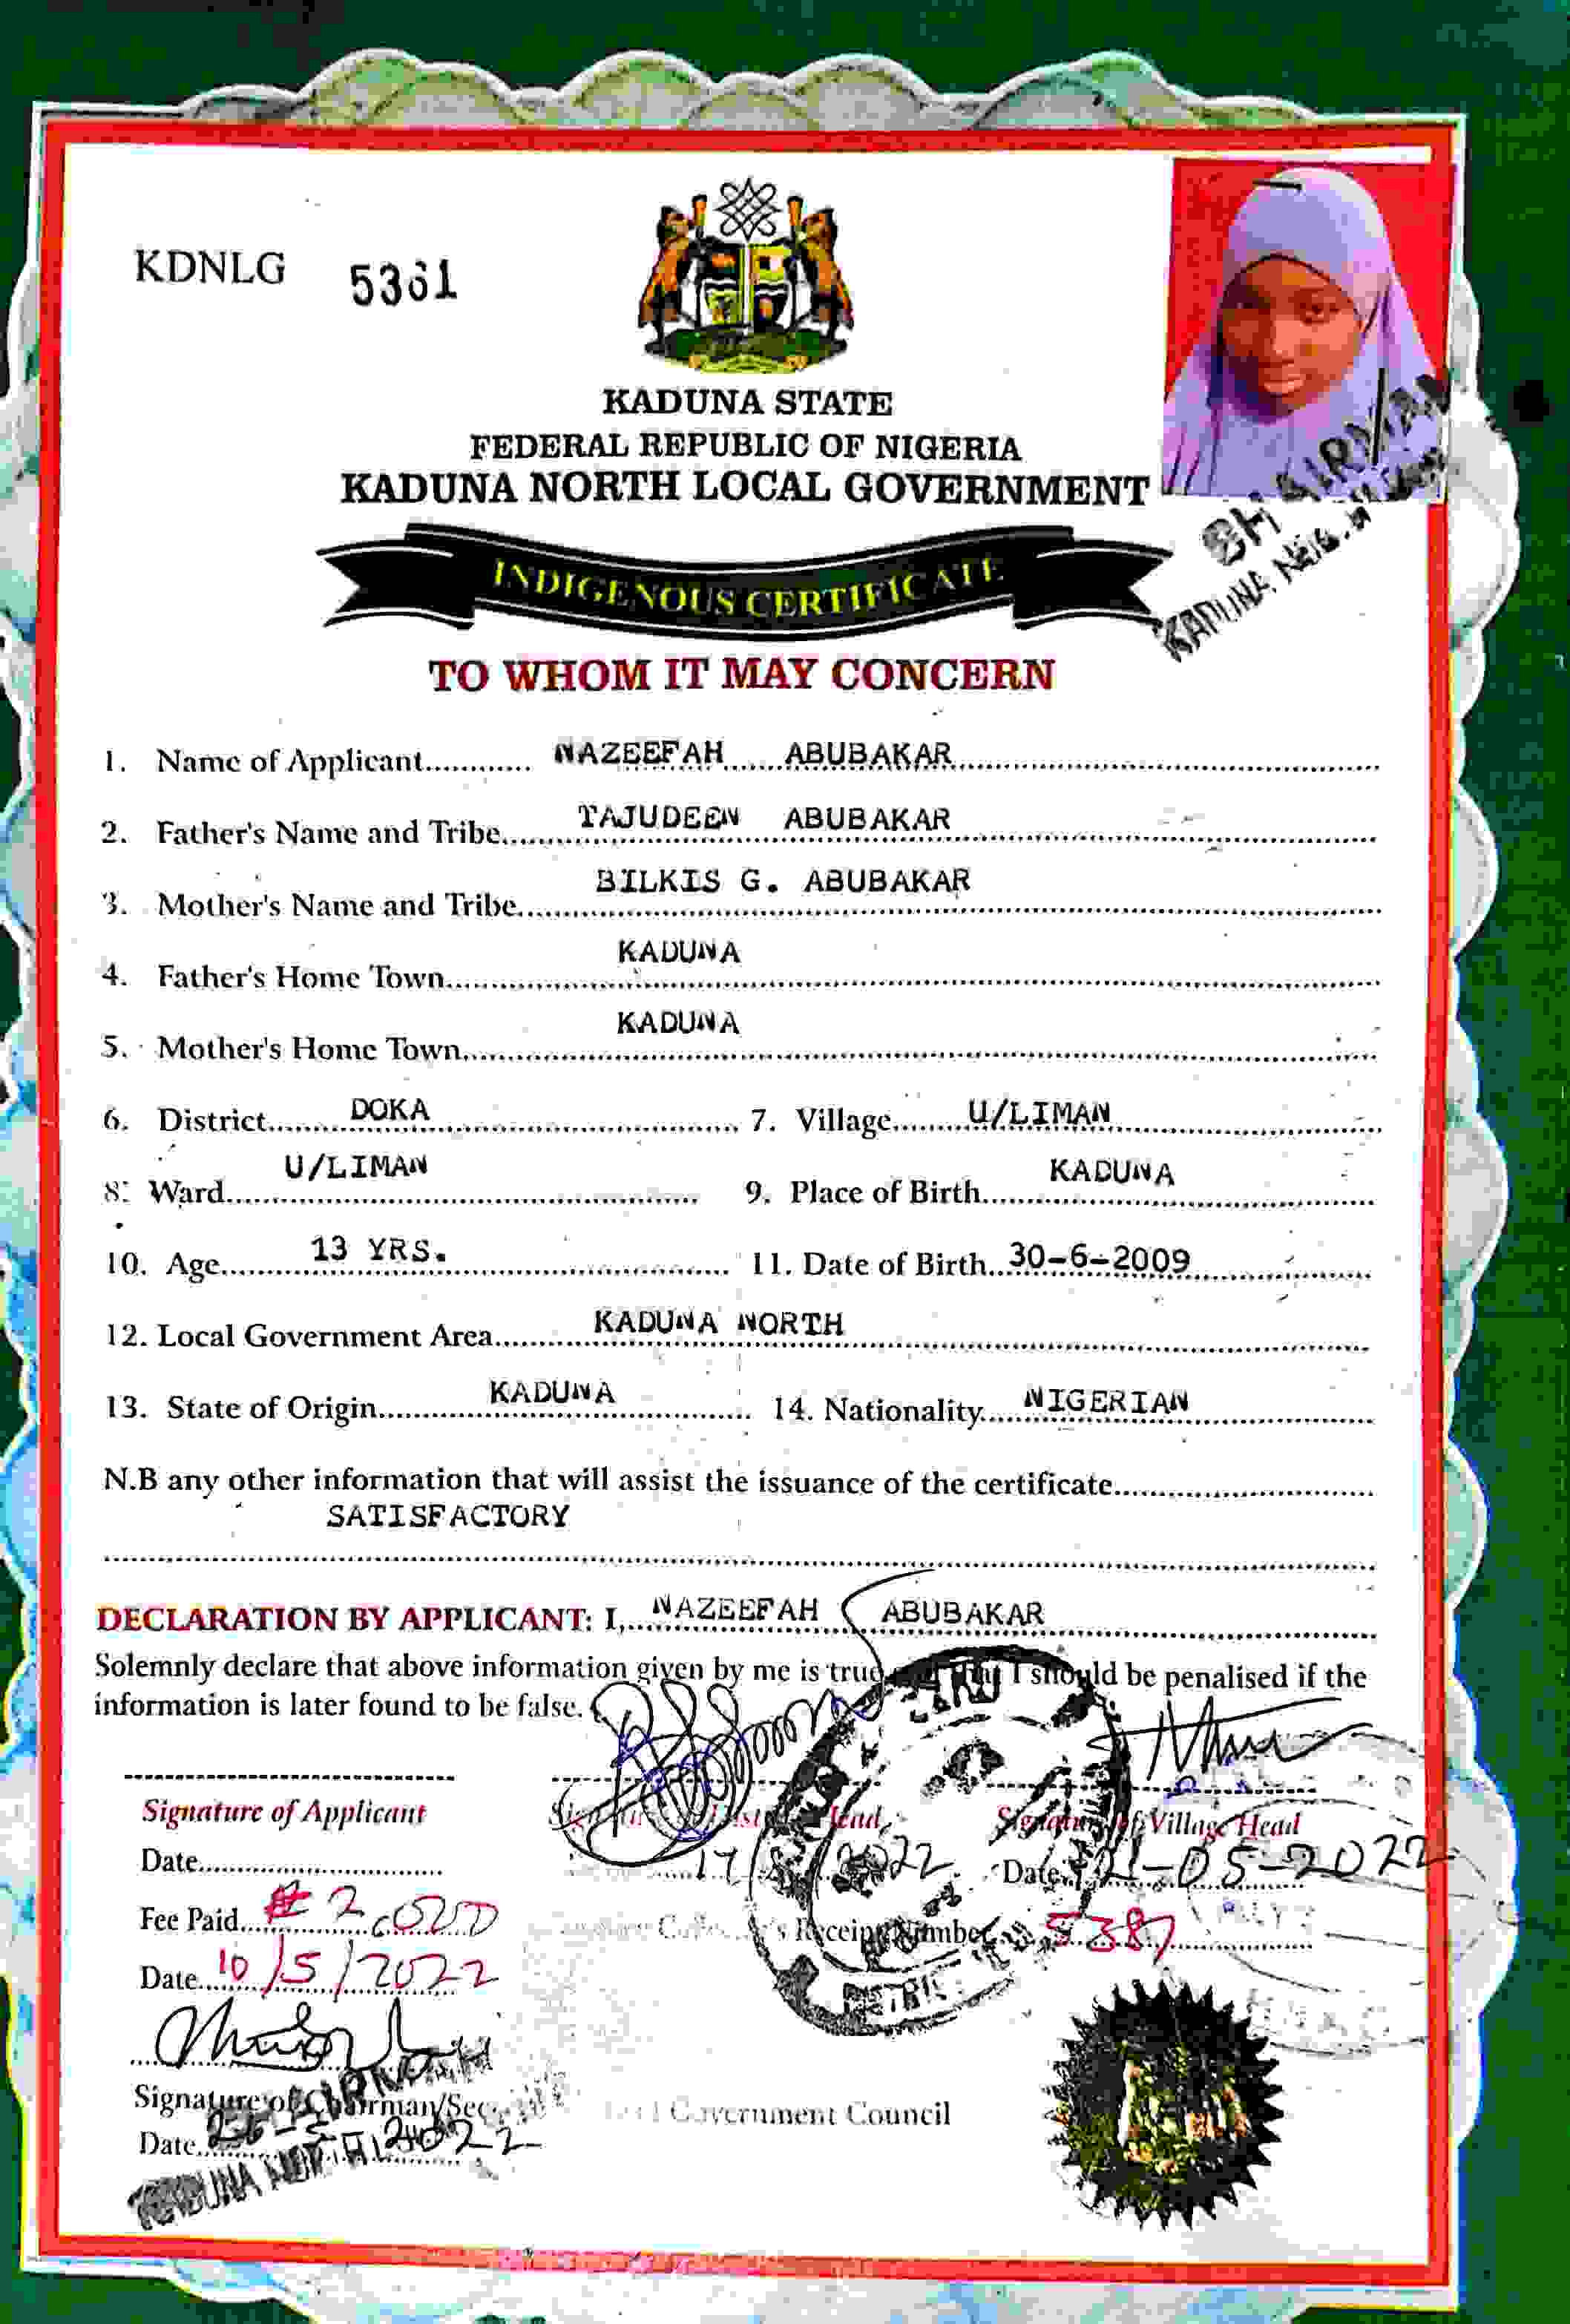 KDNLG 5361
KADUNA STATE
FEDERAL REPUBLIC OF NIGERIA
KADUNA NORTH LOCAL GOVERNMENT
INDIGENOUS CERTIFICATE
TO WHOM IT MAY CONCERN
1. Name of Applicant............ NAZEEFAH ABUBAKAR
2. Father's Name and Tribe TAJUDEEN ABUBAKAR
3. Mother's Name and Tribe BILKIS G. ABUBAKAR
4. Father's Home Town KADUNA
5. Mother's Home Town KADUNA
6. District DOKA 7. Village U/LIMAN
8. Ward U/LIMAN 9. Place of Birth KADUNA
10. Age 13 YRS. 11. Date of Birth 30-6-2009
12. Local Government Area KADUNA NORTH
13. State of Origin KADUNA 14. Nationality NIGERIAN
N.B any other information that will assist the issuance of the certificate
SATISFACTORY
DECLARATION BY APPLICANT: I, NAZEEFAH ABUBAKAR
Solemnly declare that above information given by me is true I should be penalised if the
information is later found to be false.
Signature of Applicant Head Signature of Village Head
Date 2022 Date 21-05-2022
Fee Paid Receipt Number 5387
Date 10/5/2022
Signature of Chairman/Sec Government Council
Date 2022
KADUNA NORTH